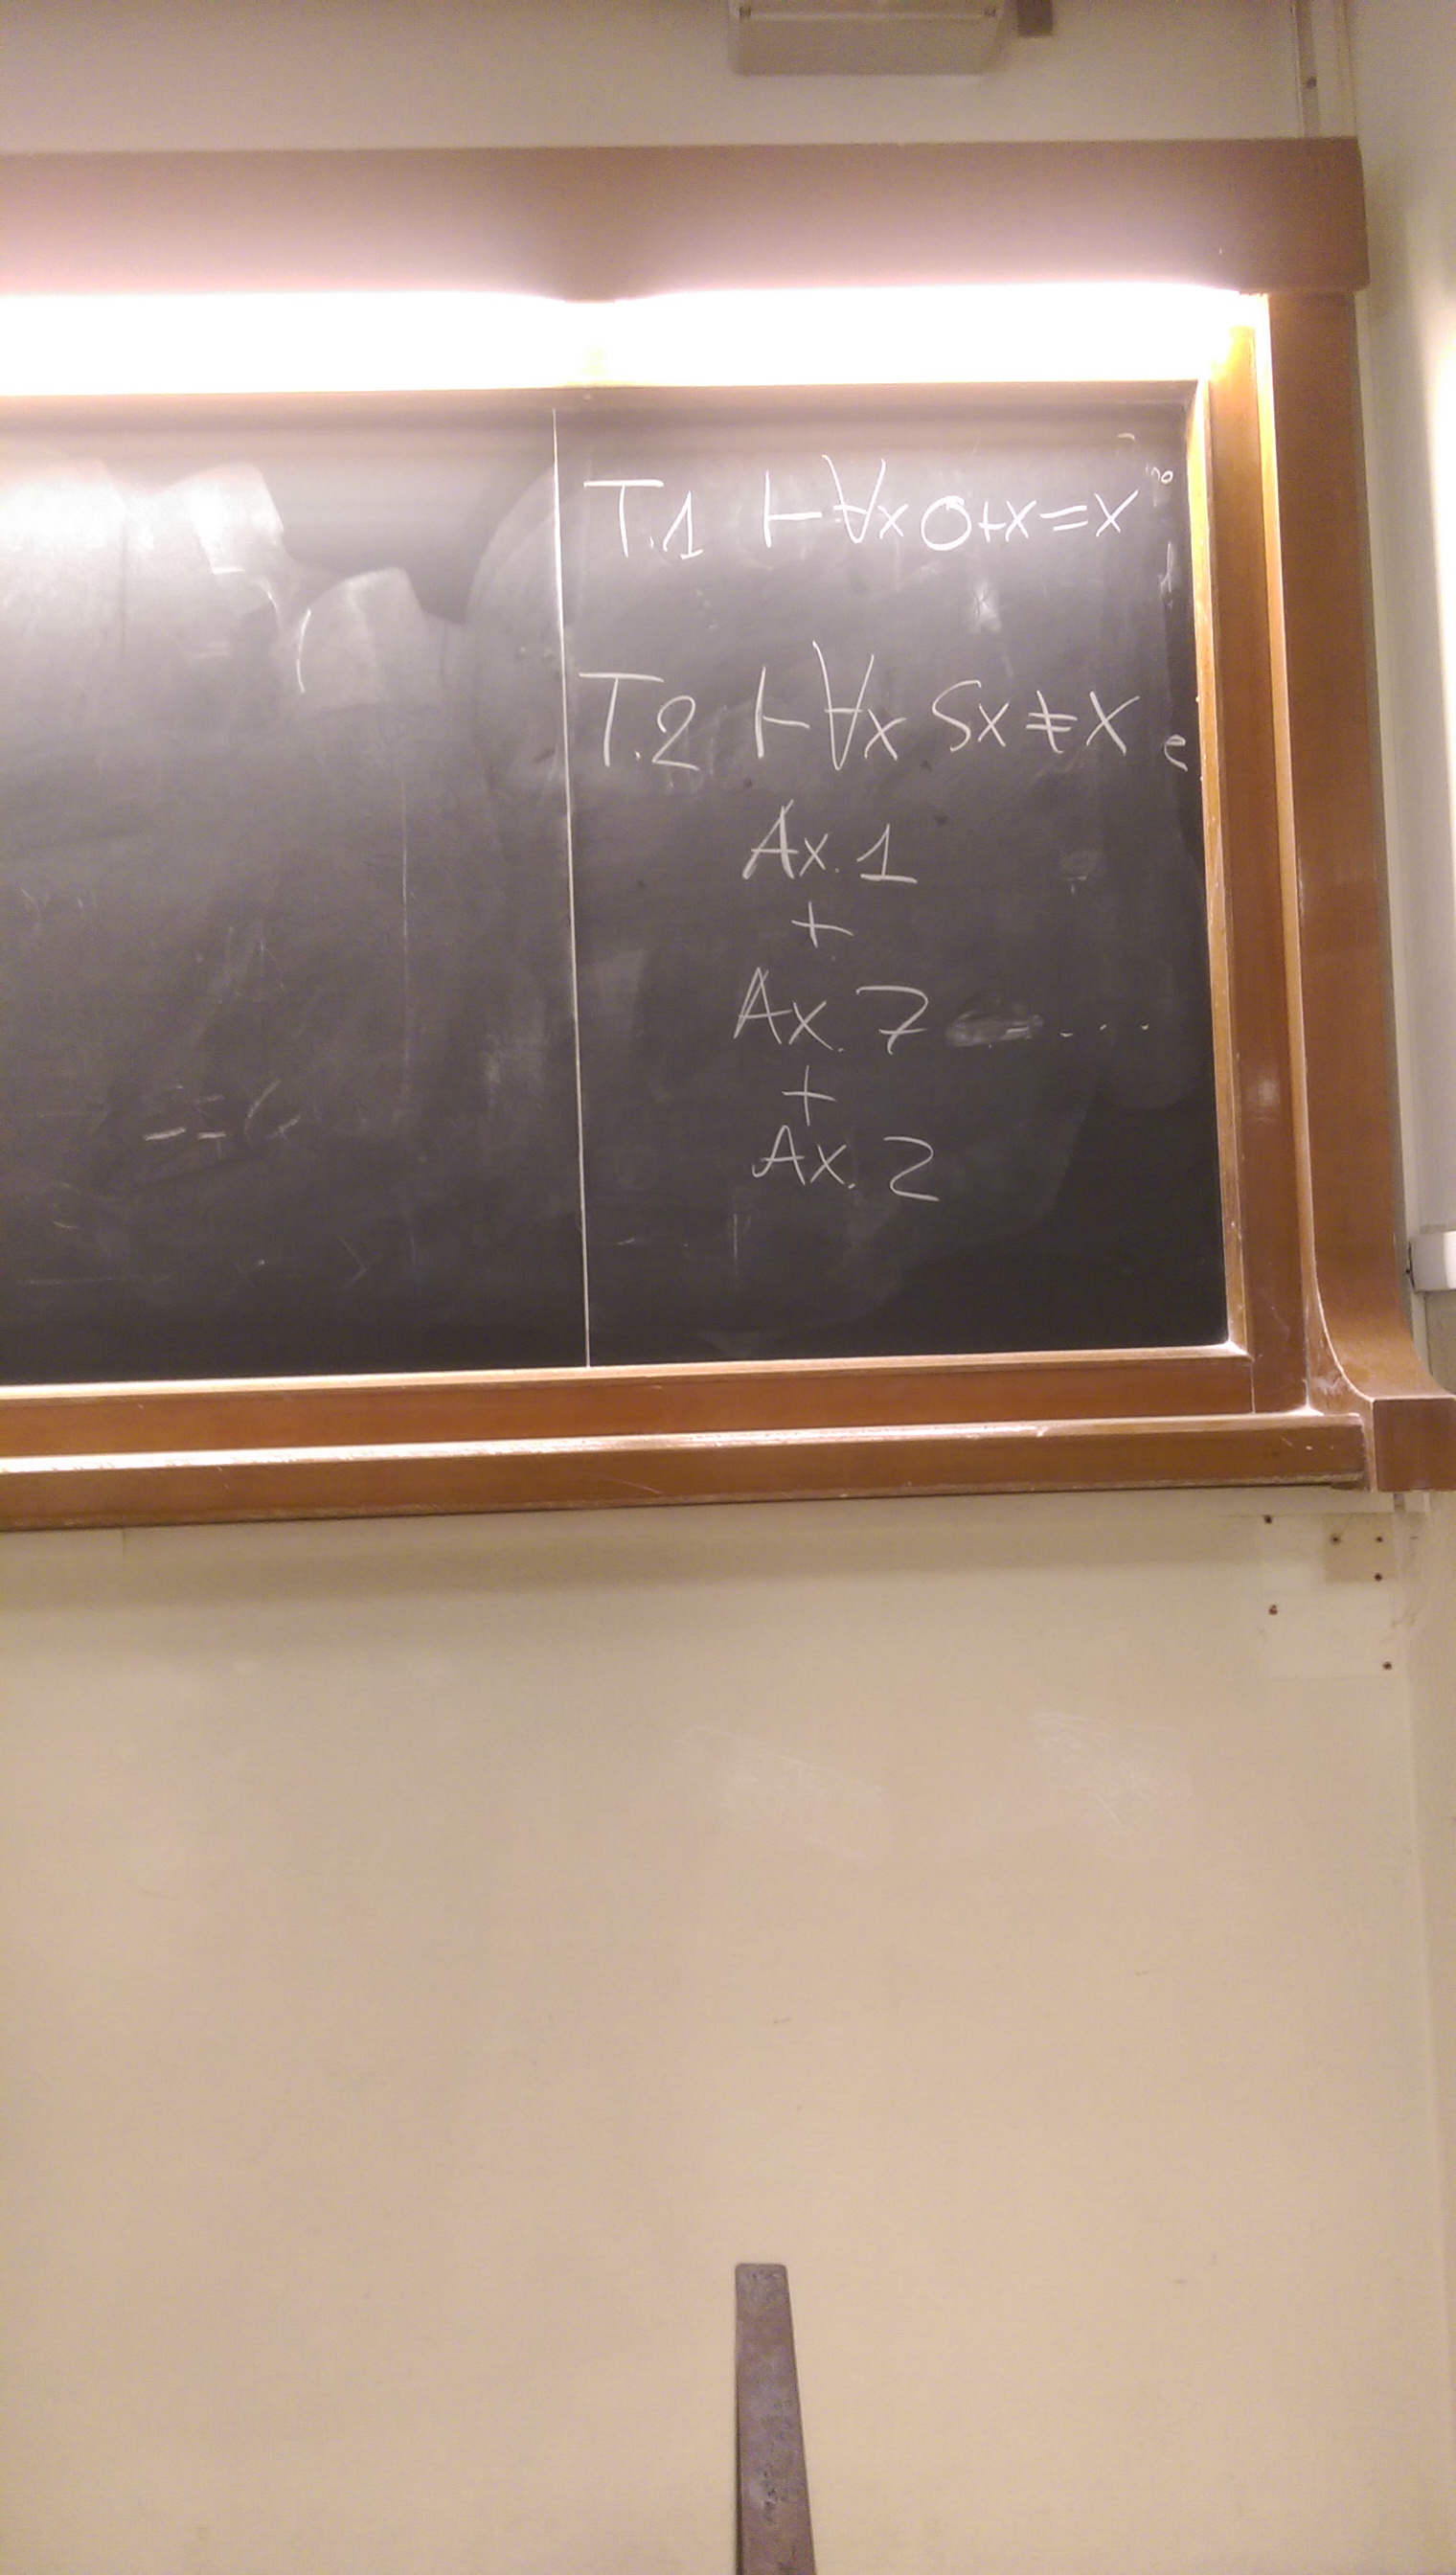 T.1 ⊢ ∀x 0+x=x
T.2 ⊢ ∀x Sx≠x
Ax. 1
+
Ax. 7 ....
+
Ax. 2